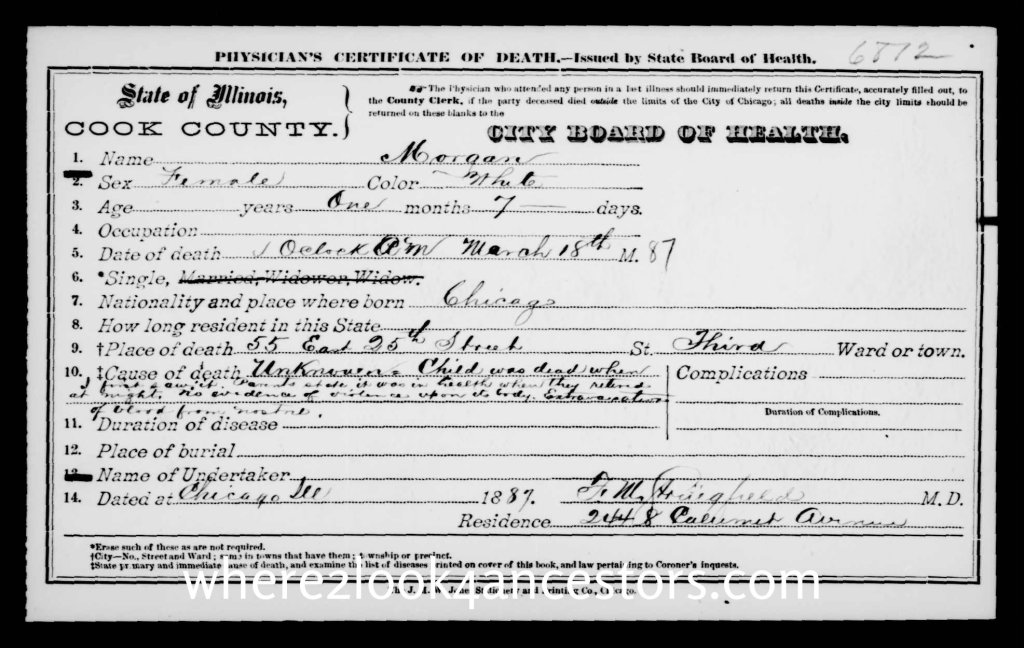 PHYSICIAN'S CERTIFICATE OF DEATH.—Issued by State Board of Health. 6812
State of Illinois,
COOK COUNTY.
The Physician who attended any person in a last illness should immediately return this Certificate, accurately filled out, to
the County Clerk, if the party deceased died outside the limits of the City of Chicago; all deaths inside the city limits should be
returned on these blanks to the
CITY BOARD OF HEALTH.
1. Name Morgan
2. Sex Female Color White
3. Age years One months 7 — days.
4. Occupation
5. Date of death 1 Oclock A M March 18th M. 87
6. *Single, Married, Widower, Widow.
7. Nationality and place where born Chicago
8. How long resident in this State
9. †Place of death 55 East 25th Street St. Third Ward or town.
10. ‡Cause of death Unknown - Child was dead when
I first saw it. Parents state it was in health when they retired
at night. No evidence of violence upon its body. Extravasation
of blood from nostril.
Complications
Duration of Complications.
11. Duration of disease
12. Place of burial
13. Name of Undertaker
14. Dated at Chicago Ill 1887. F. M. M. D.
Residence 2448 Calumet Avenue
*Erase such of these as are not required.
†City—No., Street and Ward; same in towns that have them; township or precinct.
‡State primary and immediate cause of death, and examine the list of diseases printed on cover of this book, and law pertaining to Coroner's inquests.
where2look4ancestors.com
The J. M. W. Jones Stationery and Printing Co., Chicago.